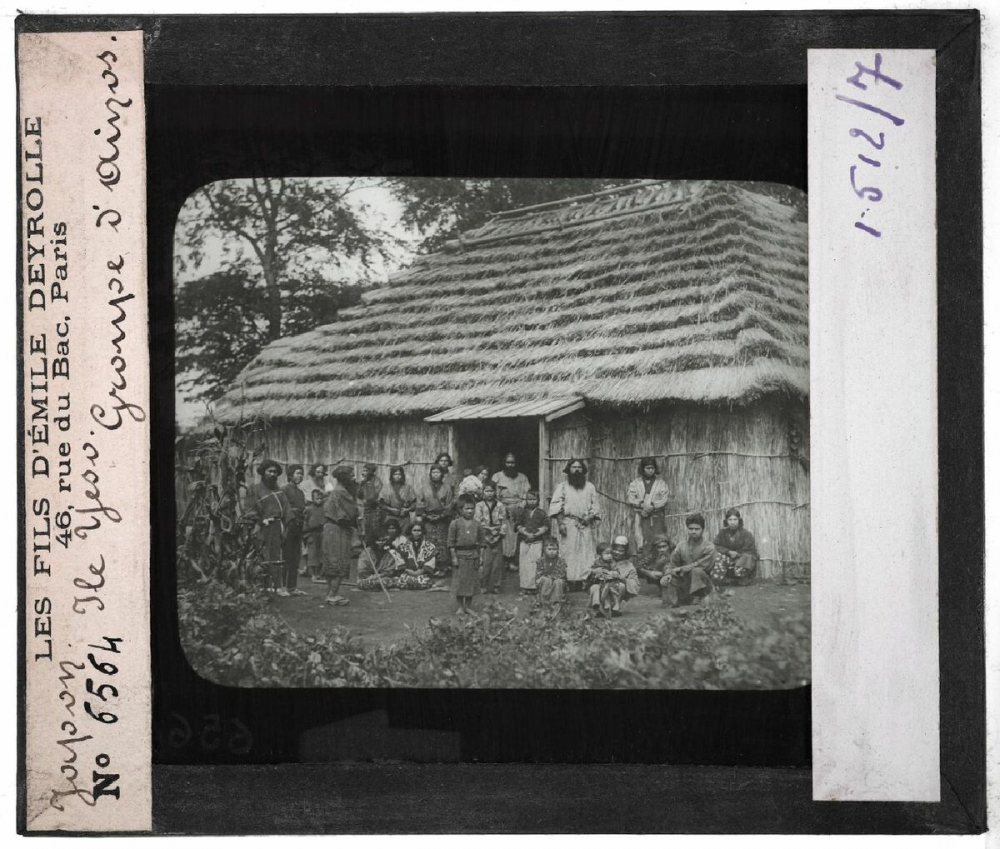 LES FILS D'ÉMILE DEYROLLE
46, rue du Bac, Paris
Japon. Ile Yeso. Groupe d'Aïnos.
No 6564
1.512/7